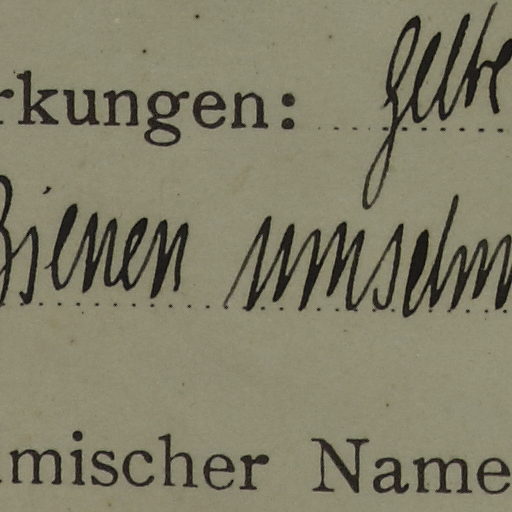 rkungen: gelbe
Bienen umschw
mischer Name